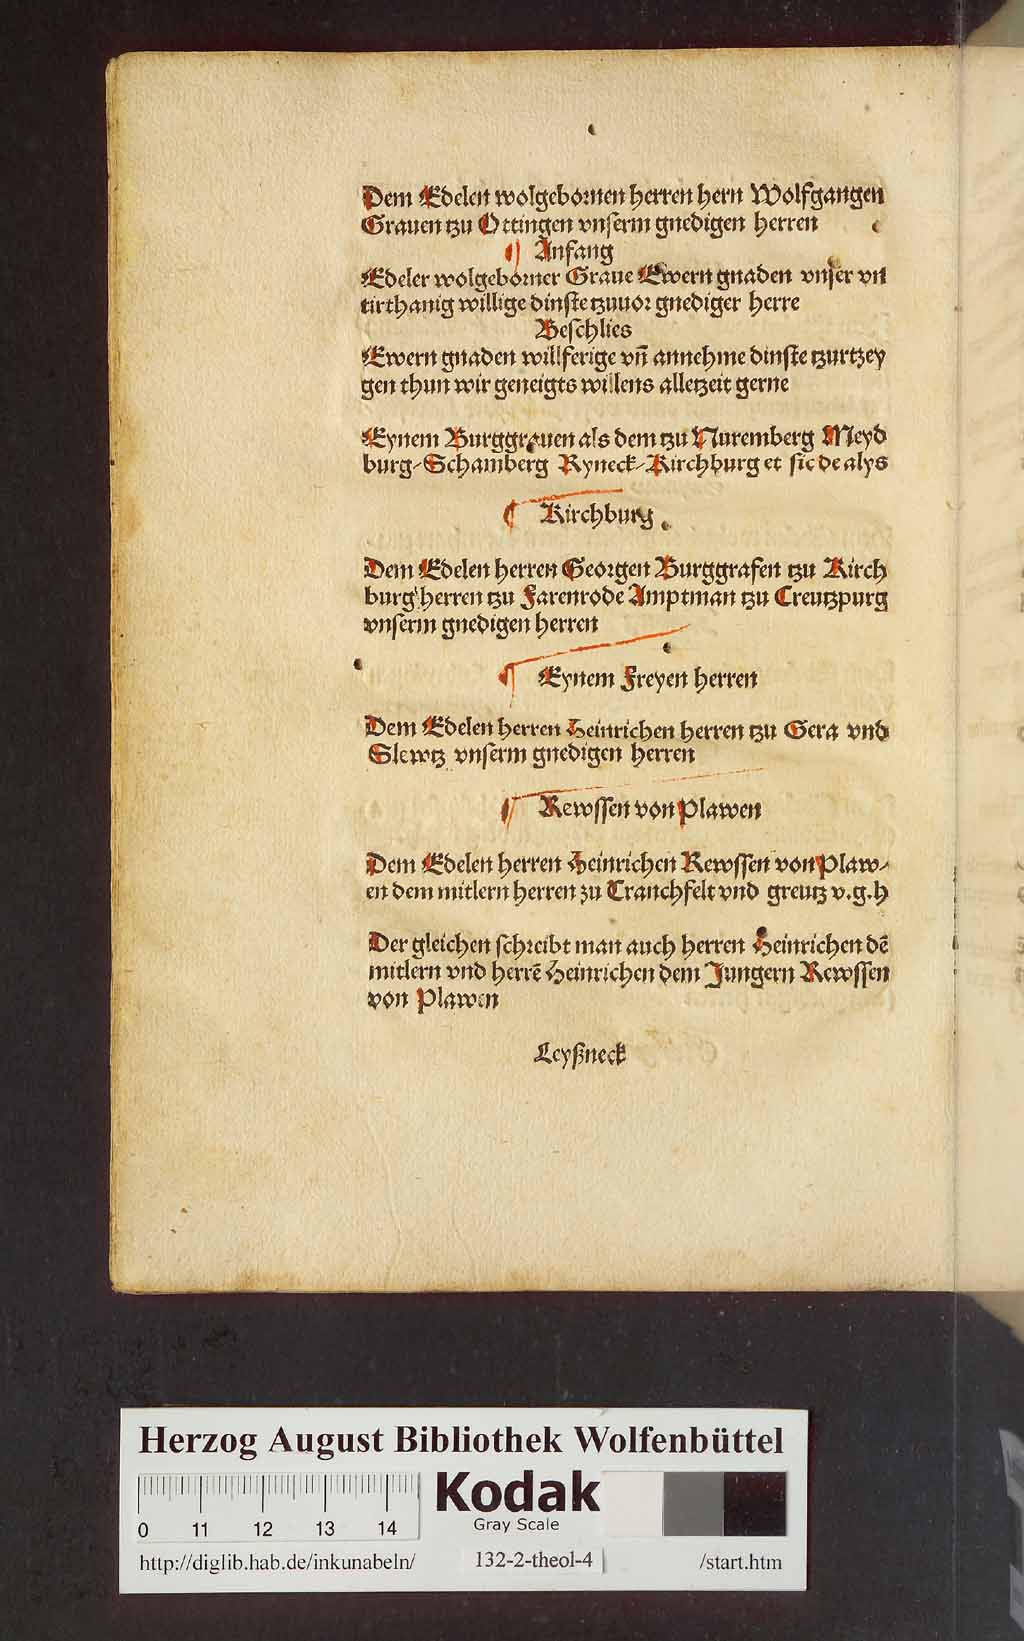 Dem Edelen wolgebornen herren hern Wolfgangen
Grauen tzu Ottingen vnserm gnedigen herren
Anfang
Edeler wolgeborner Graue Ewern gnaden vnser vn
tirthanig willige dinste tzuuor gnediger herre
Beschlies
Ewern gnaden willferige vn̄ annehme dinste tzurtzey
gen thun wir geneigts willens alletzeit gerne
Eynem Burggrauen als dem tzu Nuremberg Meyd
burg-Schamberg Ryneck-Kirchburg et sic de alys
Kirchburg
Dem Edelen herren Georgen Burggrafen tzu Kirch
burg herren tzu Farenrode Amptman tzu Creutzpurg
vnserm gnedigen herren
Eynem Freyen herren
Dem Edelen herren Heinrichen herren tzu Gera vnd
Slewtz vnserm gnedigen herren
Rewssen von Plawen
Dem Edelen herren Heinrichen Rewssen von Plaw-
en dem mitlern herren zu Cranchfelt vnd greutz v.g.h
Der gleichen schreibt man auch herren Heinrichen dē
mitlern vnd herrē Heinrichen dem Jungern Rewssen
von Plawen
Leyßneck
Herzog August Bibliothek Wolfenbüttel
0 11 12 13 14
Kodak
Gray Scale
http://diglib.hab.de/inkunabeln/ 132-2-theol-4 /start.htm